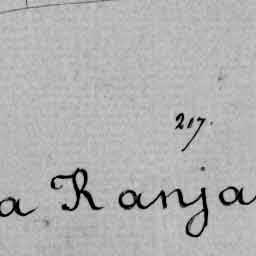 217.
a Ranja